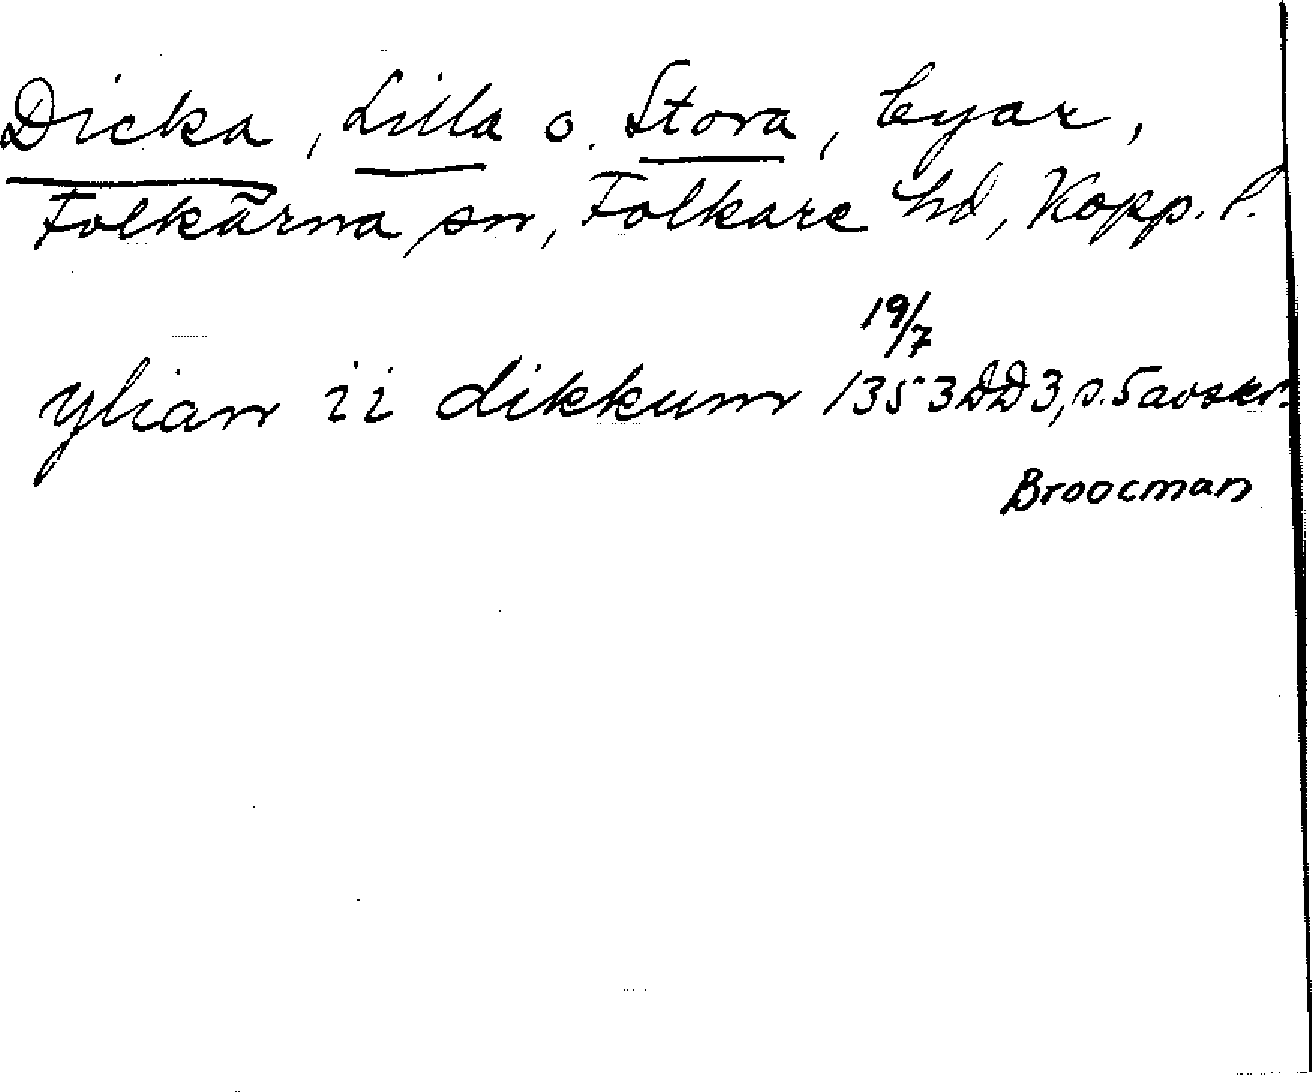 Dicka, Lilla o. Stora, byar,
Folkärna sn, Folkare hd, Kopp. l.
19/7
ylian ii dikkum 1353 DD 3, s. 5 avskr.
Broocman